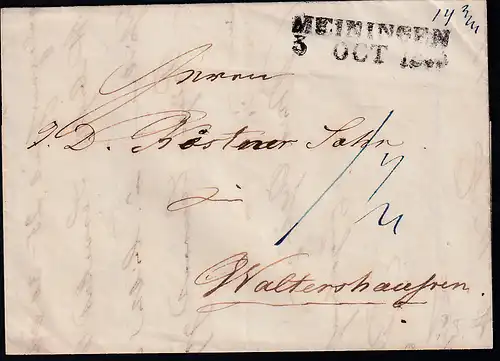 MEININGEN
3 OCT
Herren
J. D. Köstner Sohn
in
Waltershausen.